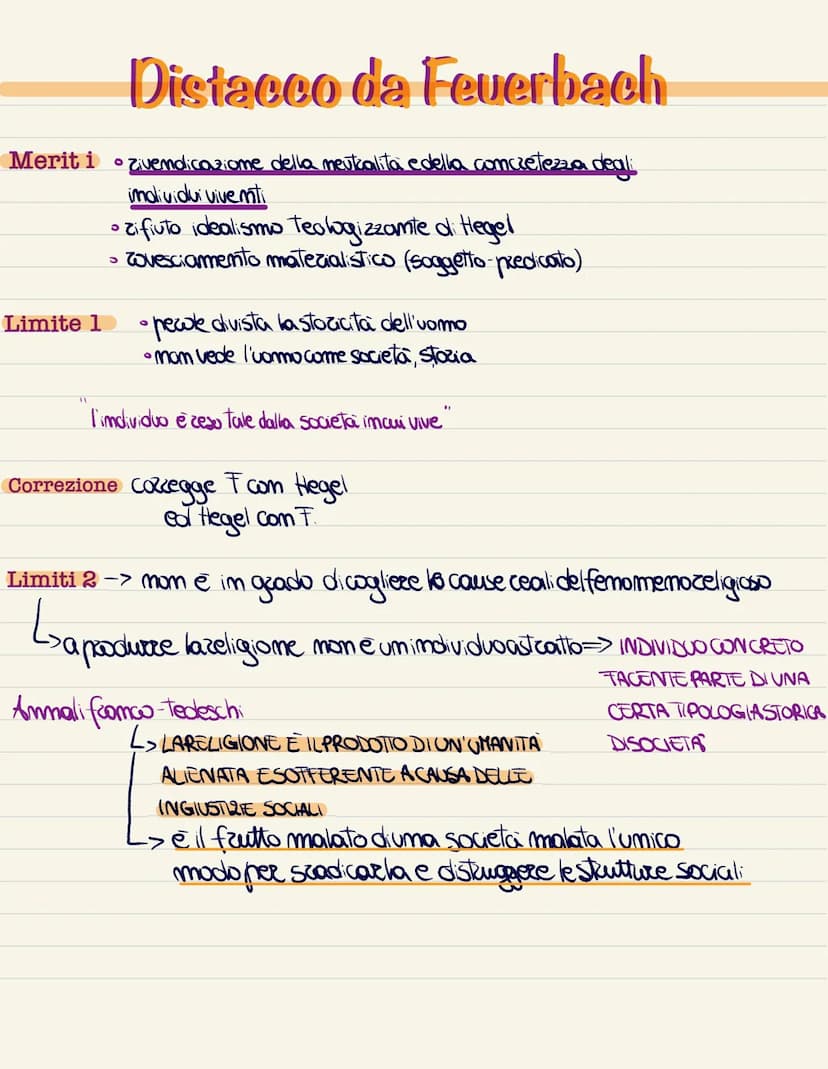 Distacco da Feuerbach
Meriti • rivendicazione della neutralità e della concretezza degli
individui viventi
• rifiuto idealismo Teologizzante di Hegel
• rovesciamento materialistico (soggetto-predicato)
Limite 1 • perde di vista la storicità dell'uomo
• non vede l'uomo come società, storia
"l'individuo è reso tale dalla società in cui vive"
Correzione corregge F con Hegel
ed Hegel con F.
Limiti 2 -> non è in grado di cogliere le cause reali del fenomeno religioso
↳ a produrre la religione non è un individuo astratto => INDIVIDUO CONCRETO
FACENTE PARTE DI UNA
Annali franco-Tedeschi CERTA TIPOLOGIA STORICA
↳ LA RELIGIONE È IL PRODOTTO DI UN'UMANITÀ DI SOCIETÀ
ALIENATA E SOFFERENTE A CAUSA DELLE
INGIUSTIZIE SOCIALI
↳ è il frutto malato di una società malata l'unico
modo per sradicarla e distruggere le strutture sociali